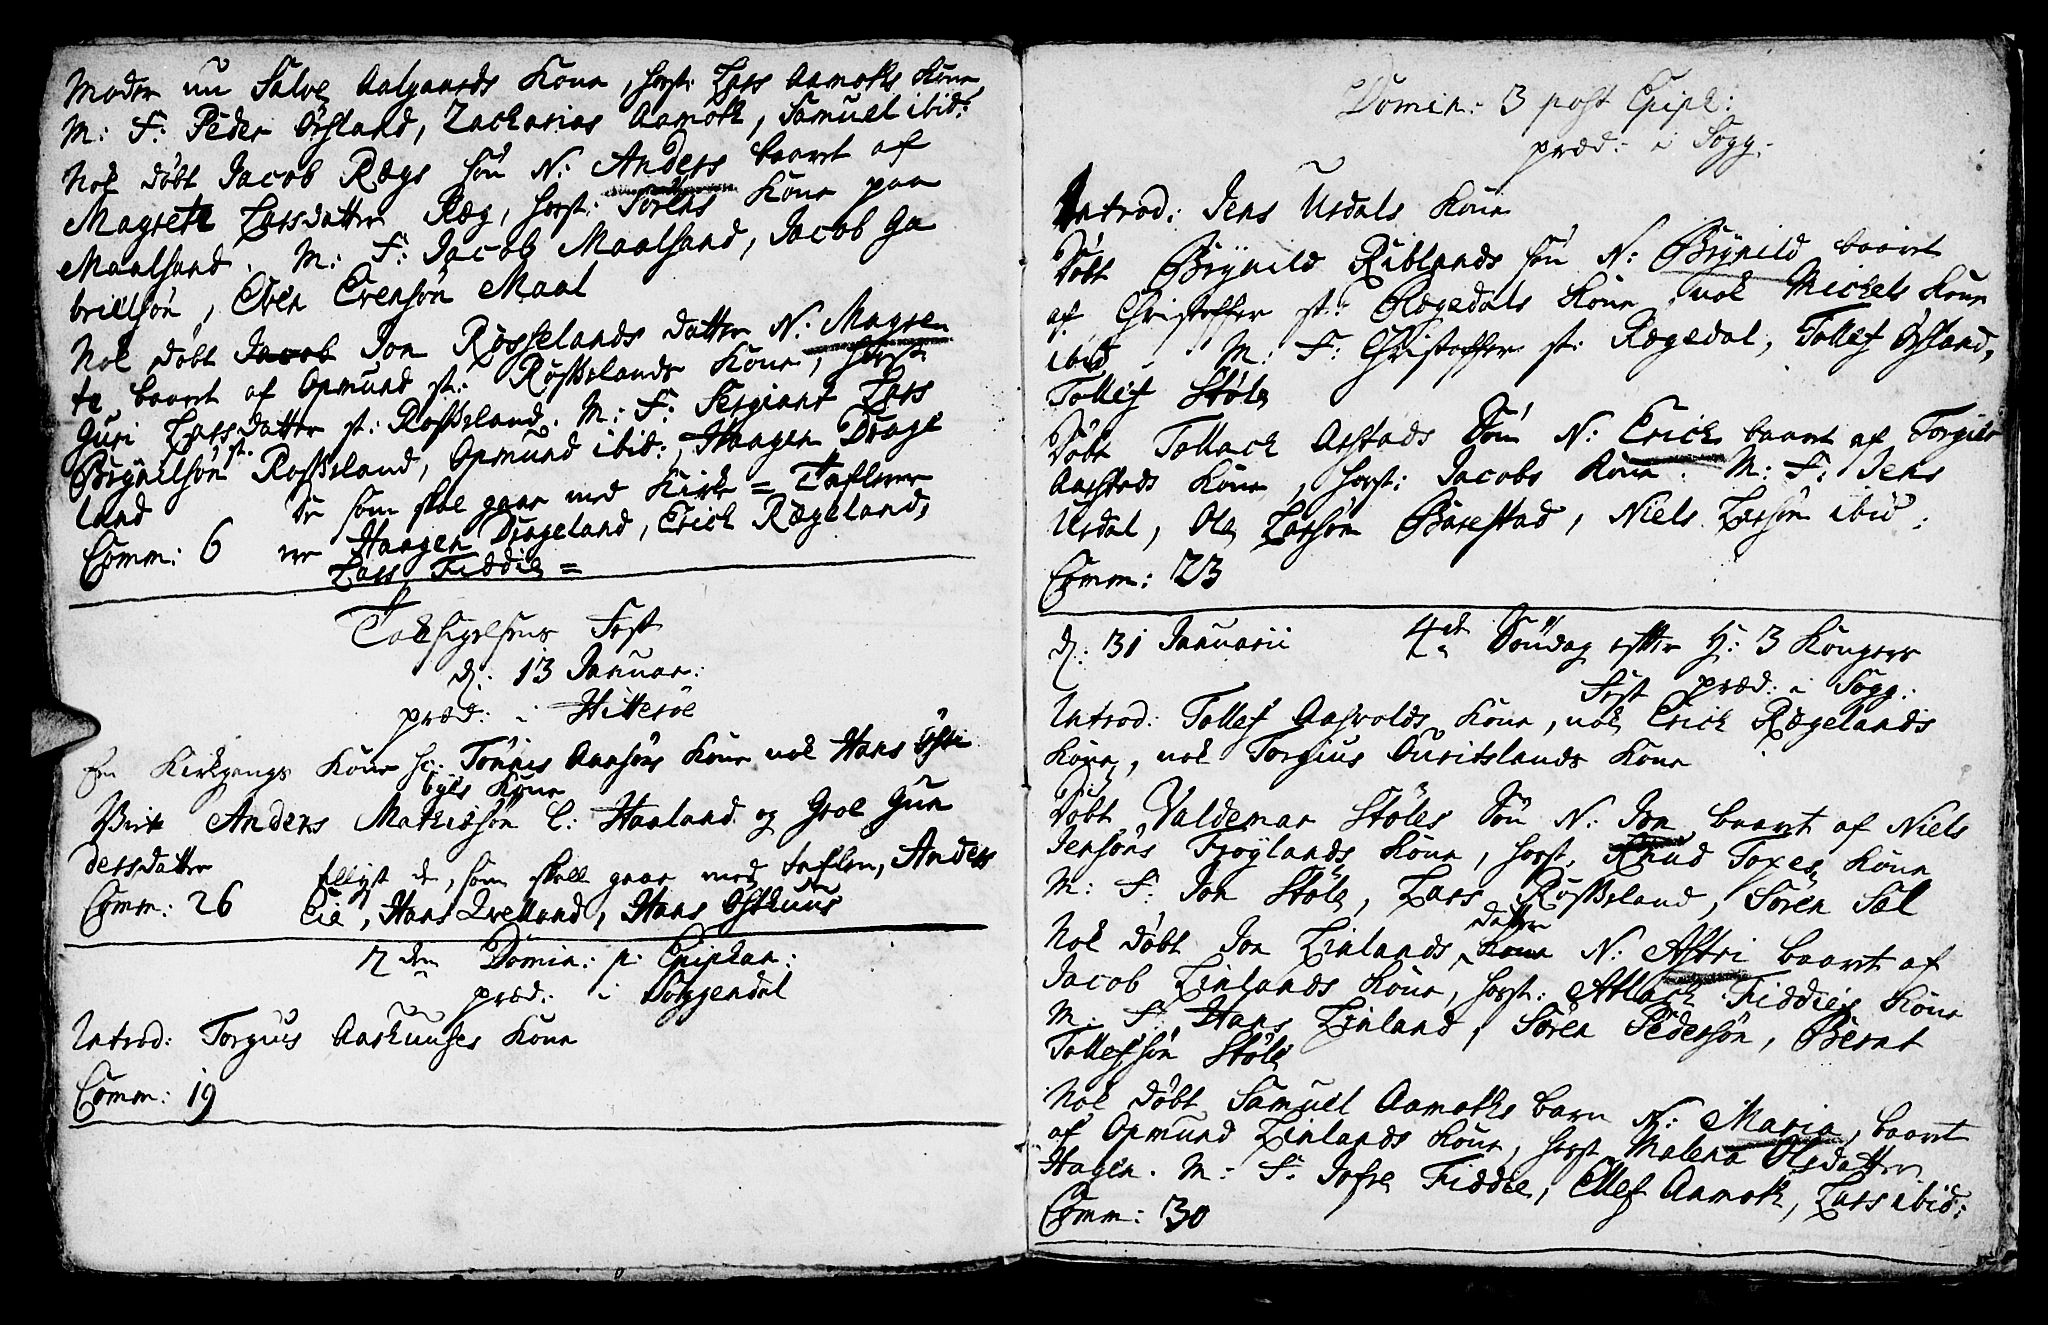 Moder nu Salve Aalgaards Kone, horst: Lars Aamoths Kone
M: F: Peder Ørsland, Zacharias Aamoth, Samuel ibid:
Nok døbt Jacob Rægs søn N: Anders baaret af
Magrete Larsdatter Ræg, horst: Sørens Kone paa
Maalsand. M: F: Jacob Maalsand, Jacob Ga
brielsøn, Even Evensøn Maal
Nok døbt Jacob Jon Røsselands datter N: Magre
te baaret af Opmund st: Røsselands Kone, horst
Guri Larsdatter st: Rosseland. M: F: Sergiant Lars
Brynilsøn st. Rosseland, Opmund ibid:, Haagen Drage
land De som skal gaae med Kirke = Taflerne
Comm: 6 ere Haagen Drageland, Erich Rægeland,
Lars Fiddie =
Taksigelsens Fest
d: 13 Januar:
præd: i Hitterøe
En Kirkgangs Kone sc: Tønnes Aansøns Kone nok Hans Øste
bøes Kone
Virt Anders Mathisøn l: Haaland og Groe Gun
dersdatter
tellyst de, som skall gaae med taflen, Anders
Comm: 26 Eie, Hans Qvelland, Hans Østhuus
2den Domin: p: Epiphan:
præd: i Soggendal
Introd: Torgius Aaskuuses Kone
Comm: 19
Domin: 3 post Epiph:
præd: i Sogg:
Introd: Jens Urdals Kone
Døbt Brynild Riblands søn N: Brynild baaret
af Christoffer st: Rægedals Kone, nok Michels Kone
ibid M: F: Christoffer st: Rægedal, Tollef Ørsland,
Tollef Støle
Døbt Tollach Aastads Søn N: Erich baaret af Torgils
Aarstads Kone, horst: Jacobs Kone M: F: Jens
Urdal, Ole Larsøn Barestad, Niels Larsøn ibid:
Comm: 23
d: 31 Januarii 4de Søndag efter H: 3 Kongers
Fest præd: i Sogg:
Introd: Tollef Aasvolds Kone, nok Erich Rægelands
Kone, nok Torgius Guritslands Kone
Døbt Valdemar Støles Søn N: Jon baaret af Niels
Jensøns Frøylands Kone, horst, Knud Toxes Kone
M: F: Jon Støle, Lars Røsseland, Søren Sæl
Nok døbt Jon Linlands Kone datter N: Astri baaret af
Jacob Linlands Kone, horst: Atlach Fiddies Kone
M: F: Hans Linland, Søren Pedersøn, Bernt
Tollefsøn Støle
Nok døbt Samuel Aamoths barn N: Maria, baaret
af Opmund Linlands Kone, horst Malena Olsdatter
Hagen. M: F: Jofre Fiddie, Ellef Aamoth, Lars ibid:
Comm: 30